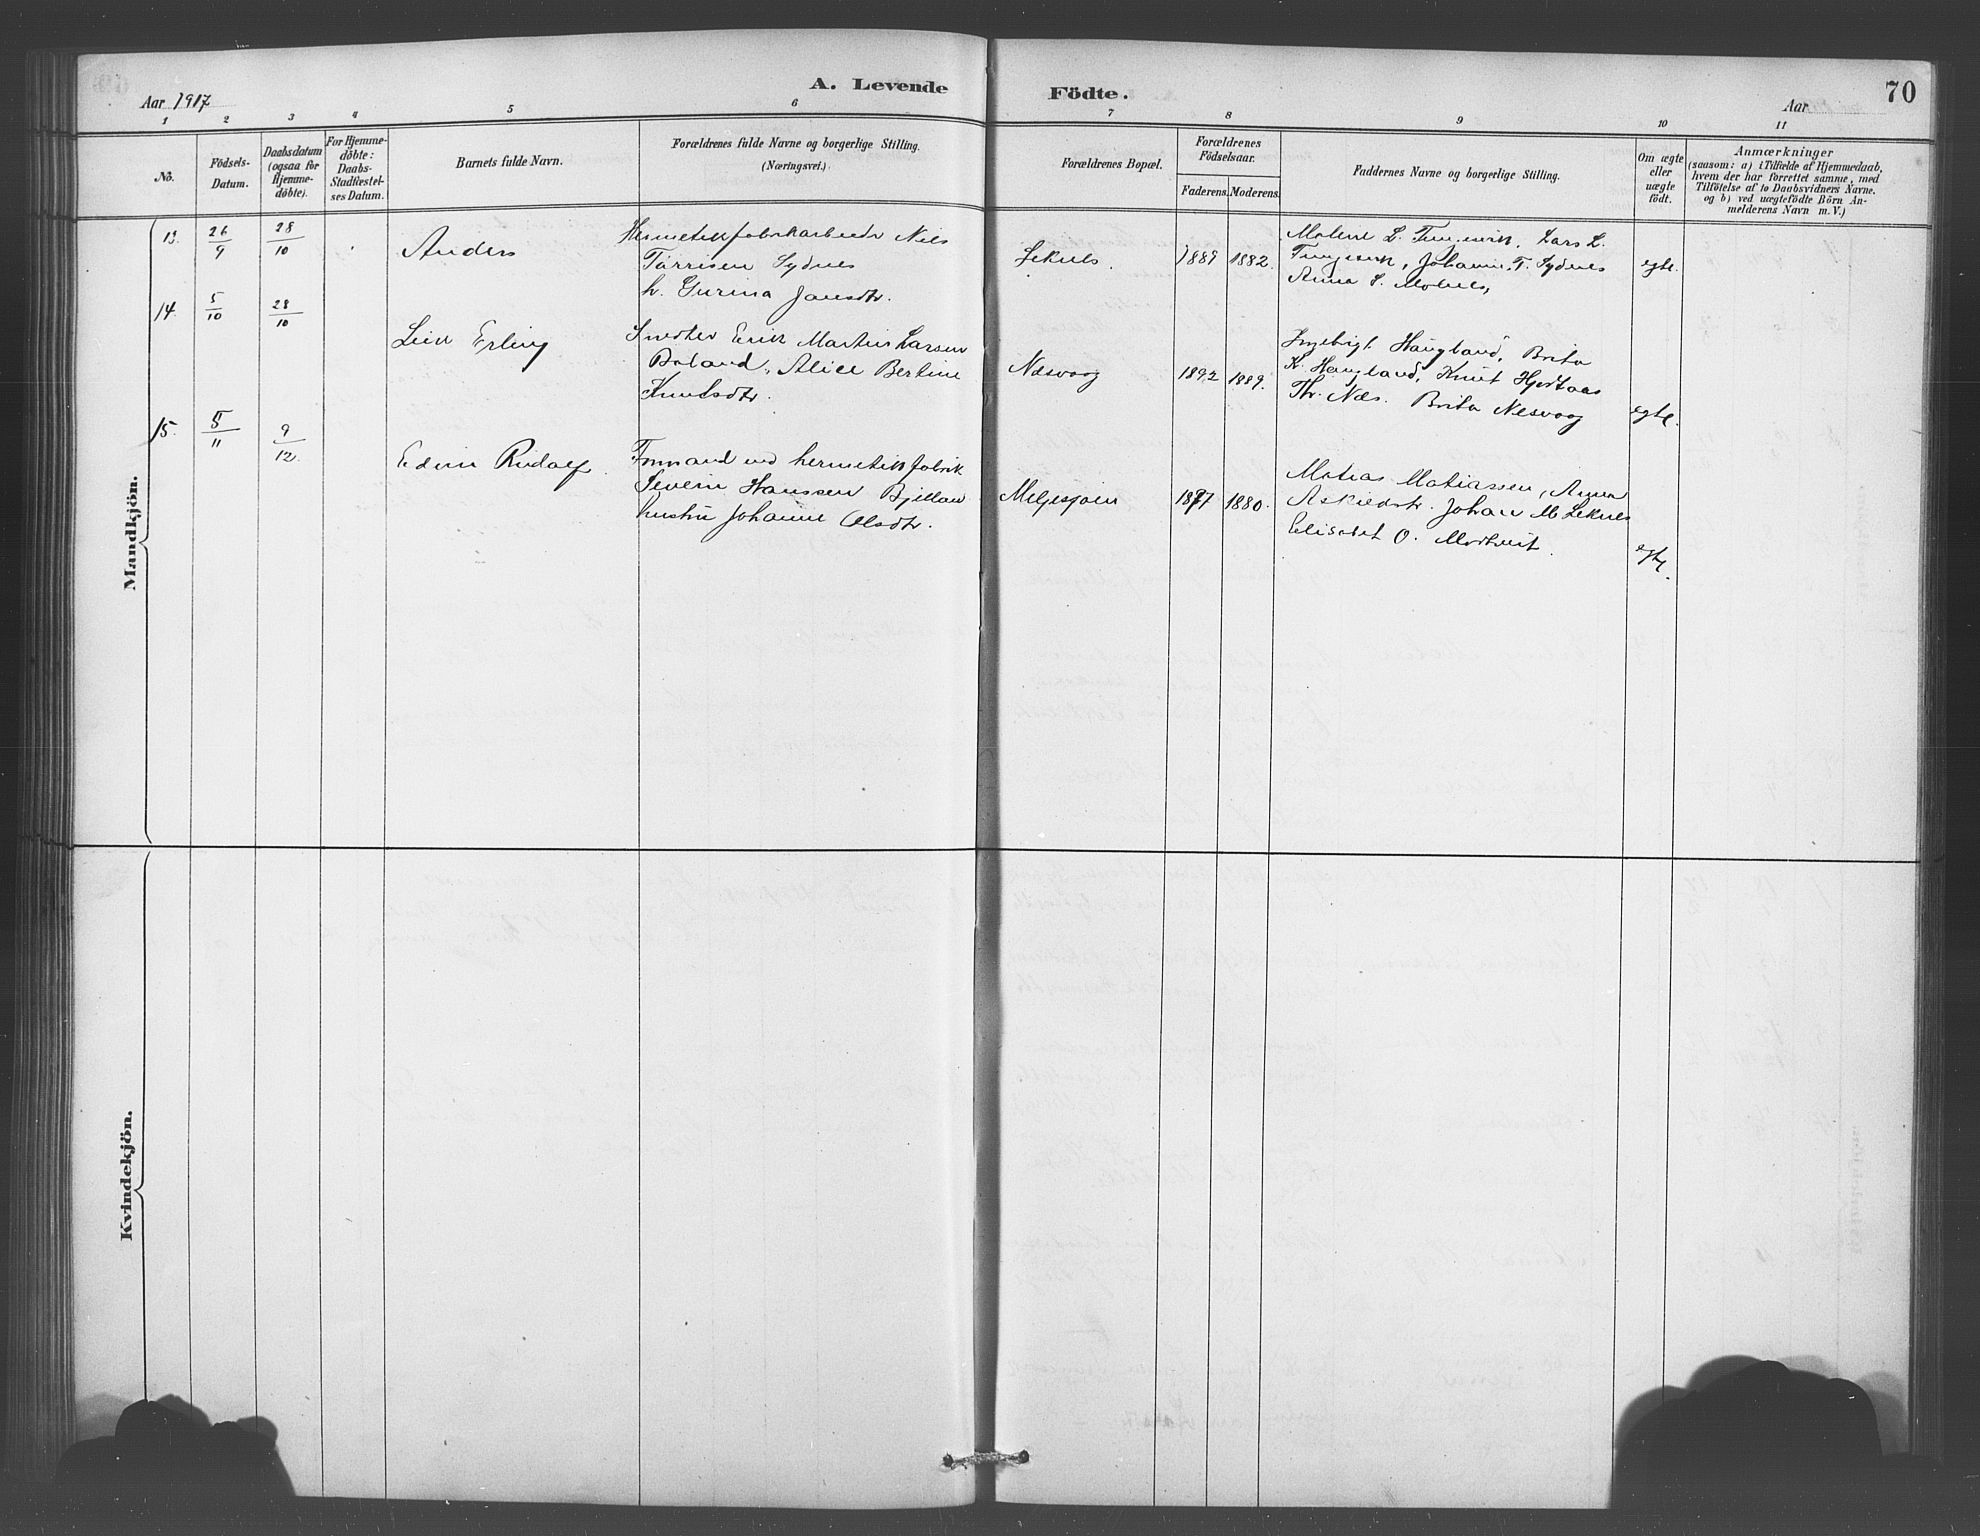 Aar 1917
A. Levende
Födte.
Aar
70
1 2 3 4 5 6 7 8 9 10 11
No.
Födsels-
Datum.
Daabsdatum
(ogsaa for
Hjemme-
döbte).
For Hjemme-
döbte:
Daabs-
Stadfæstel-
ses Datum.
Barnets fulde Navn.
Forældrenes fulde Navne og borgerlige Stilling.
(Næringsvei.)
Forældrenes Bopæl.
Forældrenes
Födselsaar.
Faderens. Moderens.
Faddernes Navne og borgerlige Stilling.
Om ægte
eller
uægte
födt.
Anmærkninger
(saasom: a) i Tilfælde af Hjemmedaab,
hvem der har forrettet samme, med
Tilföielse af to Daabsvidners Navne.
og b) ved uægtefödte Börn An-
melderens Navn m. V.)
Mandkjön.
13. 26/9 28/10
Anders
Hermetikfabrikarbeider Nils
Tørrisen Sydnes
h. Gurina Jansdtr.
Leknes. 1889 1882.
Malene L. Lars L.
Johanne T. Sydnes
Anna S.
egte.
14. 5/10 28/10
Leiv Erling
Erik Martin Larsen
Alice Bertine
Knutsdtr.
Næsvaag 1892 1889.
Ingebrigt Haugland, Brita
K. Haugland, Knut
Th. Næs. Brita Nesvaag
egte.
15. 5/11 9/12
Edvin Rudolf.
Formand ved hermetikfabrik
Severin Hanssen
hustru Johanne Olsdtr.
1877 1880.
Matias Matiassen, Anna
Johan M. Leknes
Elisabet O.
egte.
Kvindekjön.